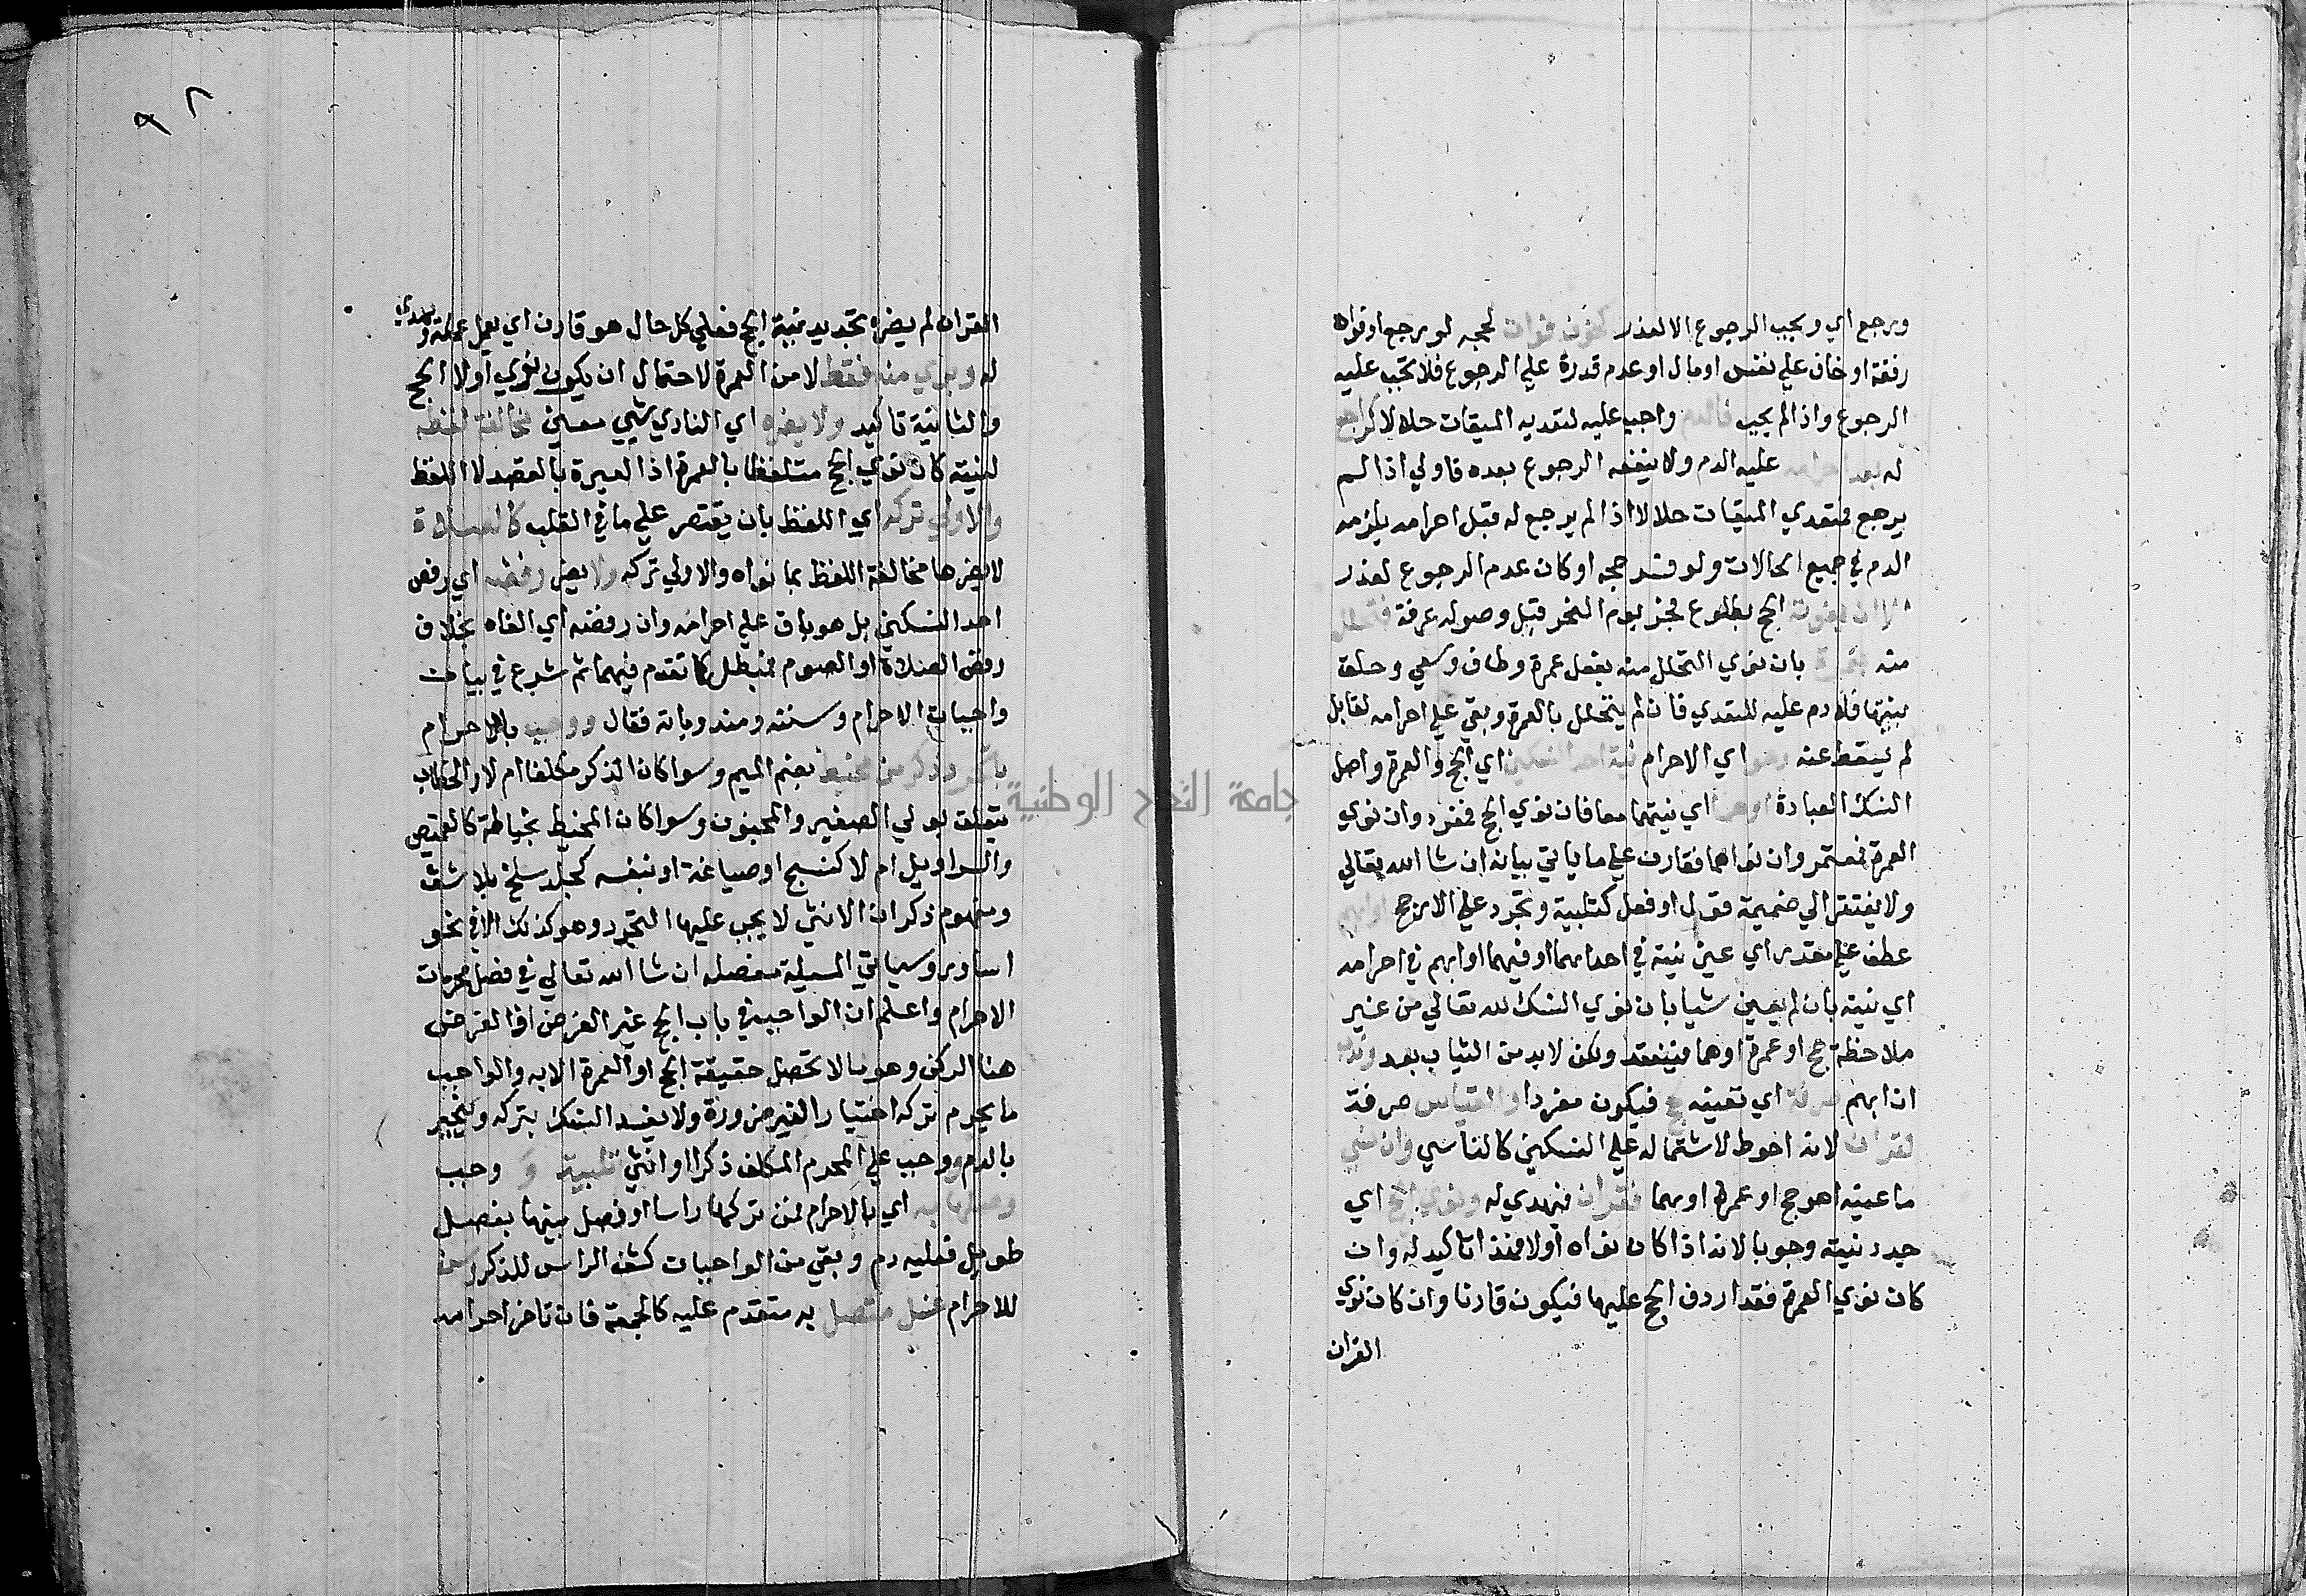 ورجع اي ويجب الرجوع الا لعذر كخوف فوات لحجه لو يرجع او فوات
رفقة او خاف علي نفس او مال او عدم قدرة علي الرجوع فلا يجب عليه
الرجوع واذا لم يجب فالدم واجب عليه لتعديه الميقات حلالا كراجع
له بعد احرامه عليه الدم ولا ينفعه الرجوع بعده فاولي اذا لم
يرجع فمتعدي الميقات حلالا اذا لم يرجع له قبل احرامه يلزمه
الدم في جميع الحالات ولو فسد حجه او كان عدم الرجوع لعذر
الا ان يفوت الحج بطلوع فجر يوم النحر قبل وصوله عرفة فتحلل
منه بعمرة بان نوي التحلل منه بفعل عمرة وطاف وسعي وحلق
بنيتها فلا دم عليه للتعدي فان لم يتحلل بالعمرة وبقي علي احرامه لقابل
لم يسقط عنه وهو اي الاحرام نية احد النسكين اي الحج والعمرة واصل
النسك العبادة او هما اي نيتهما معا فان نوي الحج فمفرد وان نوي
العمرة فمعتمر وان نواهما فقارن علي ما ياتي بيانه ان شا الله تعالي
ولا يفتقر الي ضميمة قول او فعل كتلبية وتجرد علي الارجح او ابهم
عطف علي مقدر اي عين نيته في احدهما او فيهما او ابهم في احرامه
اي نيته بان لم يعين شيا بان نوي النسك لله تعالي من غير
ملاحظة حج او عمرة او هما فينعقد ولكن لا بد من البيان بعد وندب
ان ابهم صرفه اي تعيينه لحج فيكون مفردا والقياس صرفه
لقران لانه احوط لاشتماله علي النسكين كالناسي وان نسي
ما عينه اهو حج او عمرة او هما فقران فيهدي له ونوي الحج اي
جدد نيته وجوبا لانه اذا كان نواه اولا فهذا تاكيد له وان
كان نوي العمرة فقد اردف الحج عليها فيكون قارنا وان كان نوي
القران
٩٢
القران لم يضره تجديد نية الحج فعلي كل حال هو قارن اي يعمل عمله ويهدي
له وبري منه فقط لا من العمرة لاحتمال ان يكون نوي اولا الحج
والثانية تاكيد ولا يضره اي الناوي لشي معين مخالفة لفظه
لنيته كان نوي الحج متلفظا بالعمرة اذ العبرة بالقصد لا اللفظ
والاولي تركه اي اللفظ بان يقتصر علي ما في القلب كالصلاة
لا يضرها مخالفة اللفظ بما نواه والاولي تركه ولا يضر رفضه اي رفض
احد النسكين بل هو باق علي احرامه وان رفضه اي الغاه بخلاف
رفض الصلاة او الصوم فمبطل كما تقدم فيهما ثم شرع في بيان
واجبات الاحرام وسننه ومندوباته فقال ووجب بالاحرام
تجرد ذكر من محيط بضم الميم وسوا كان الذكر مكلفا ام لا والخطاب
يتعلق بولي الصغير والمجنون وسوا كان المحيط بخياطة كالقميص
والسراويل ام لا كنسج او صياغة او بنفسه كجلد سلخ بلا شق
ومفهوم ذكر ان الانثي لا يجب عليها التجرد وهو كذلك الا في نحو
اساور وسياتي المسيلة مفصله ان شا الله تعالي في فصل محرمات
الاحرام واعلم ان الواجب في باب الحج غير الفرض اذ الفرض
هنا الركن وهو ما لا تحصل حقيقة الحج او العمرة الا به والواجب
ما يحرم تركه اختيارا لغير ضرورة ولا يفسد النسك بتركه وينجبر
بالدم ووجب علي المحرم المكلف ذكرا او انثي تلبية و وجب
وصلها به اي بالاحرام فمن تركها راسا او فصل بينها بفصل
طويل فعليه دم وبقي من الواجبات كشف الراس للذكر وسن
للاحرام غسل متصل به متقدم عليه كالجمعة فان تاخر احرامه
جامعة النجاح الوطنية